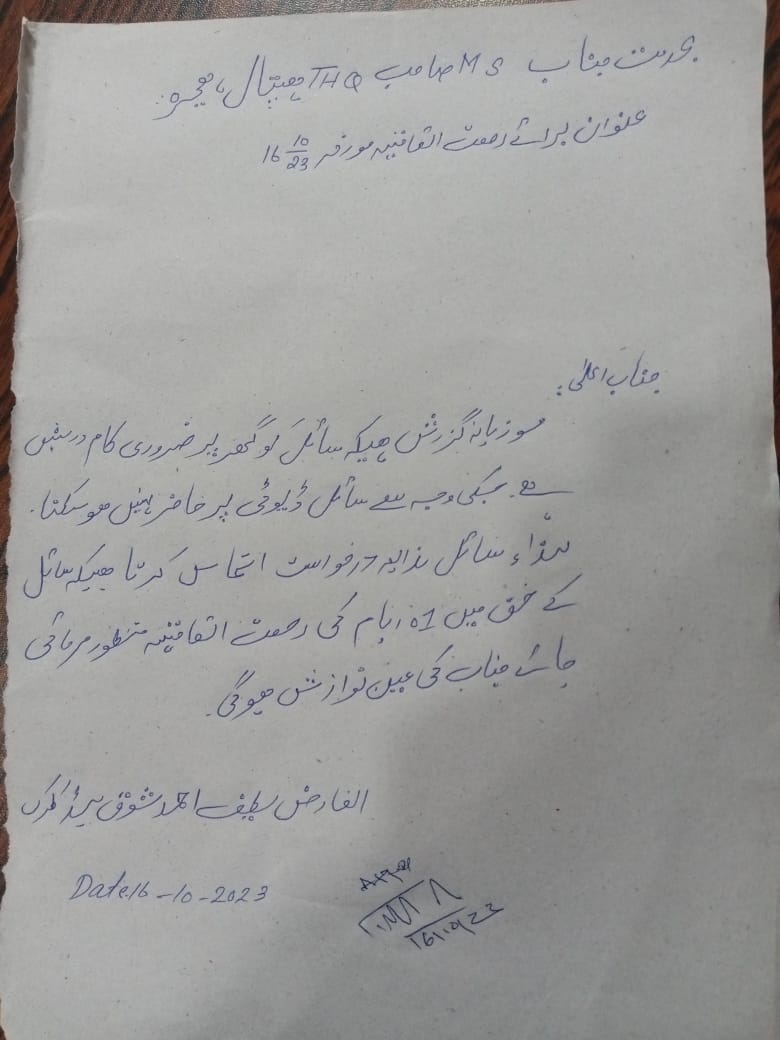 بخدمت جناب MS صاحب THQ ہسپتال ہجیرہ
عنوان برائے رخصت اتفاقیہ مورخہ 16/10/23
جناب اعلیٰ:
موزبانہ گزرش ہیکہ سائل کو گھر پر ضروری کام درپیش
ہے۔ جسکی وجہ سے سائل ڈیوٹی پر حاضر نہیں ہو سکتا۔
لہذاء سائل بذریہ درخواست التماس کرتا ہیکہ سائل
کے حق میں 01 ایام کی رخصت اتفاقیہ منظور فرمائی
جائے جناب کی عین نوازش ہوگی۔
العارض لطیف احمد شوق ہیڈ کلرک
Date 16-10-2023
16/10/23